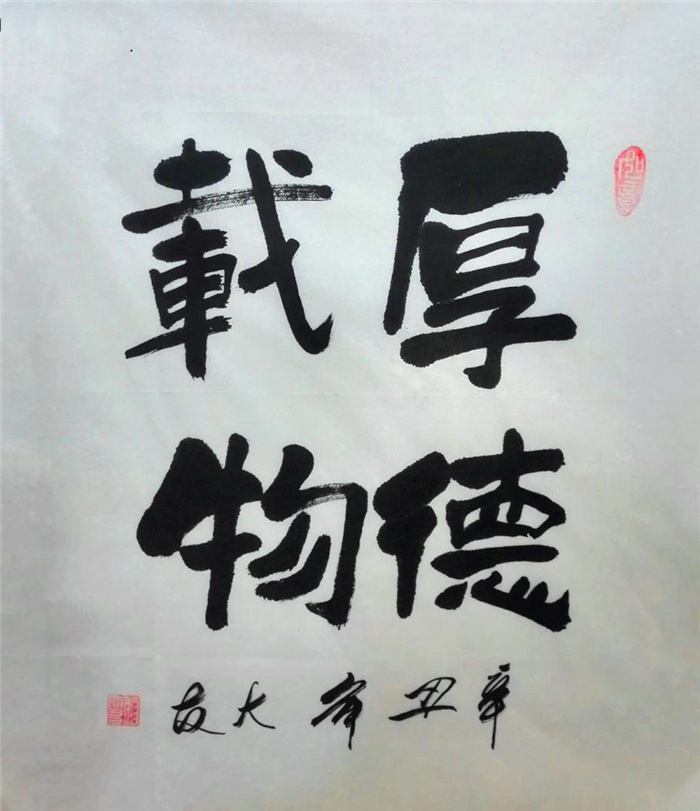 厚德
載物
辛丑年大友